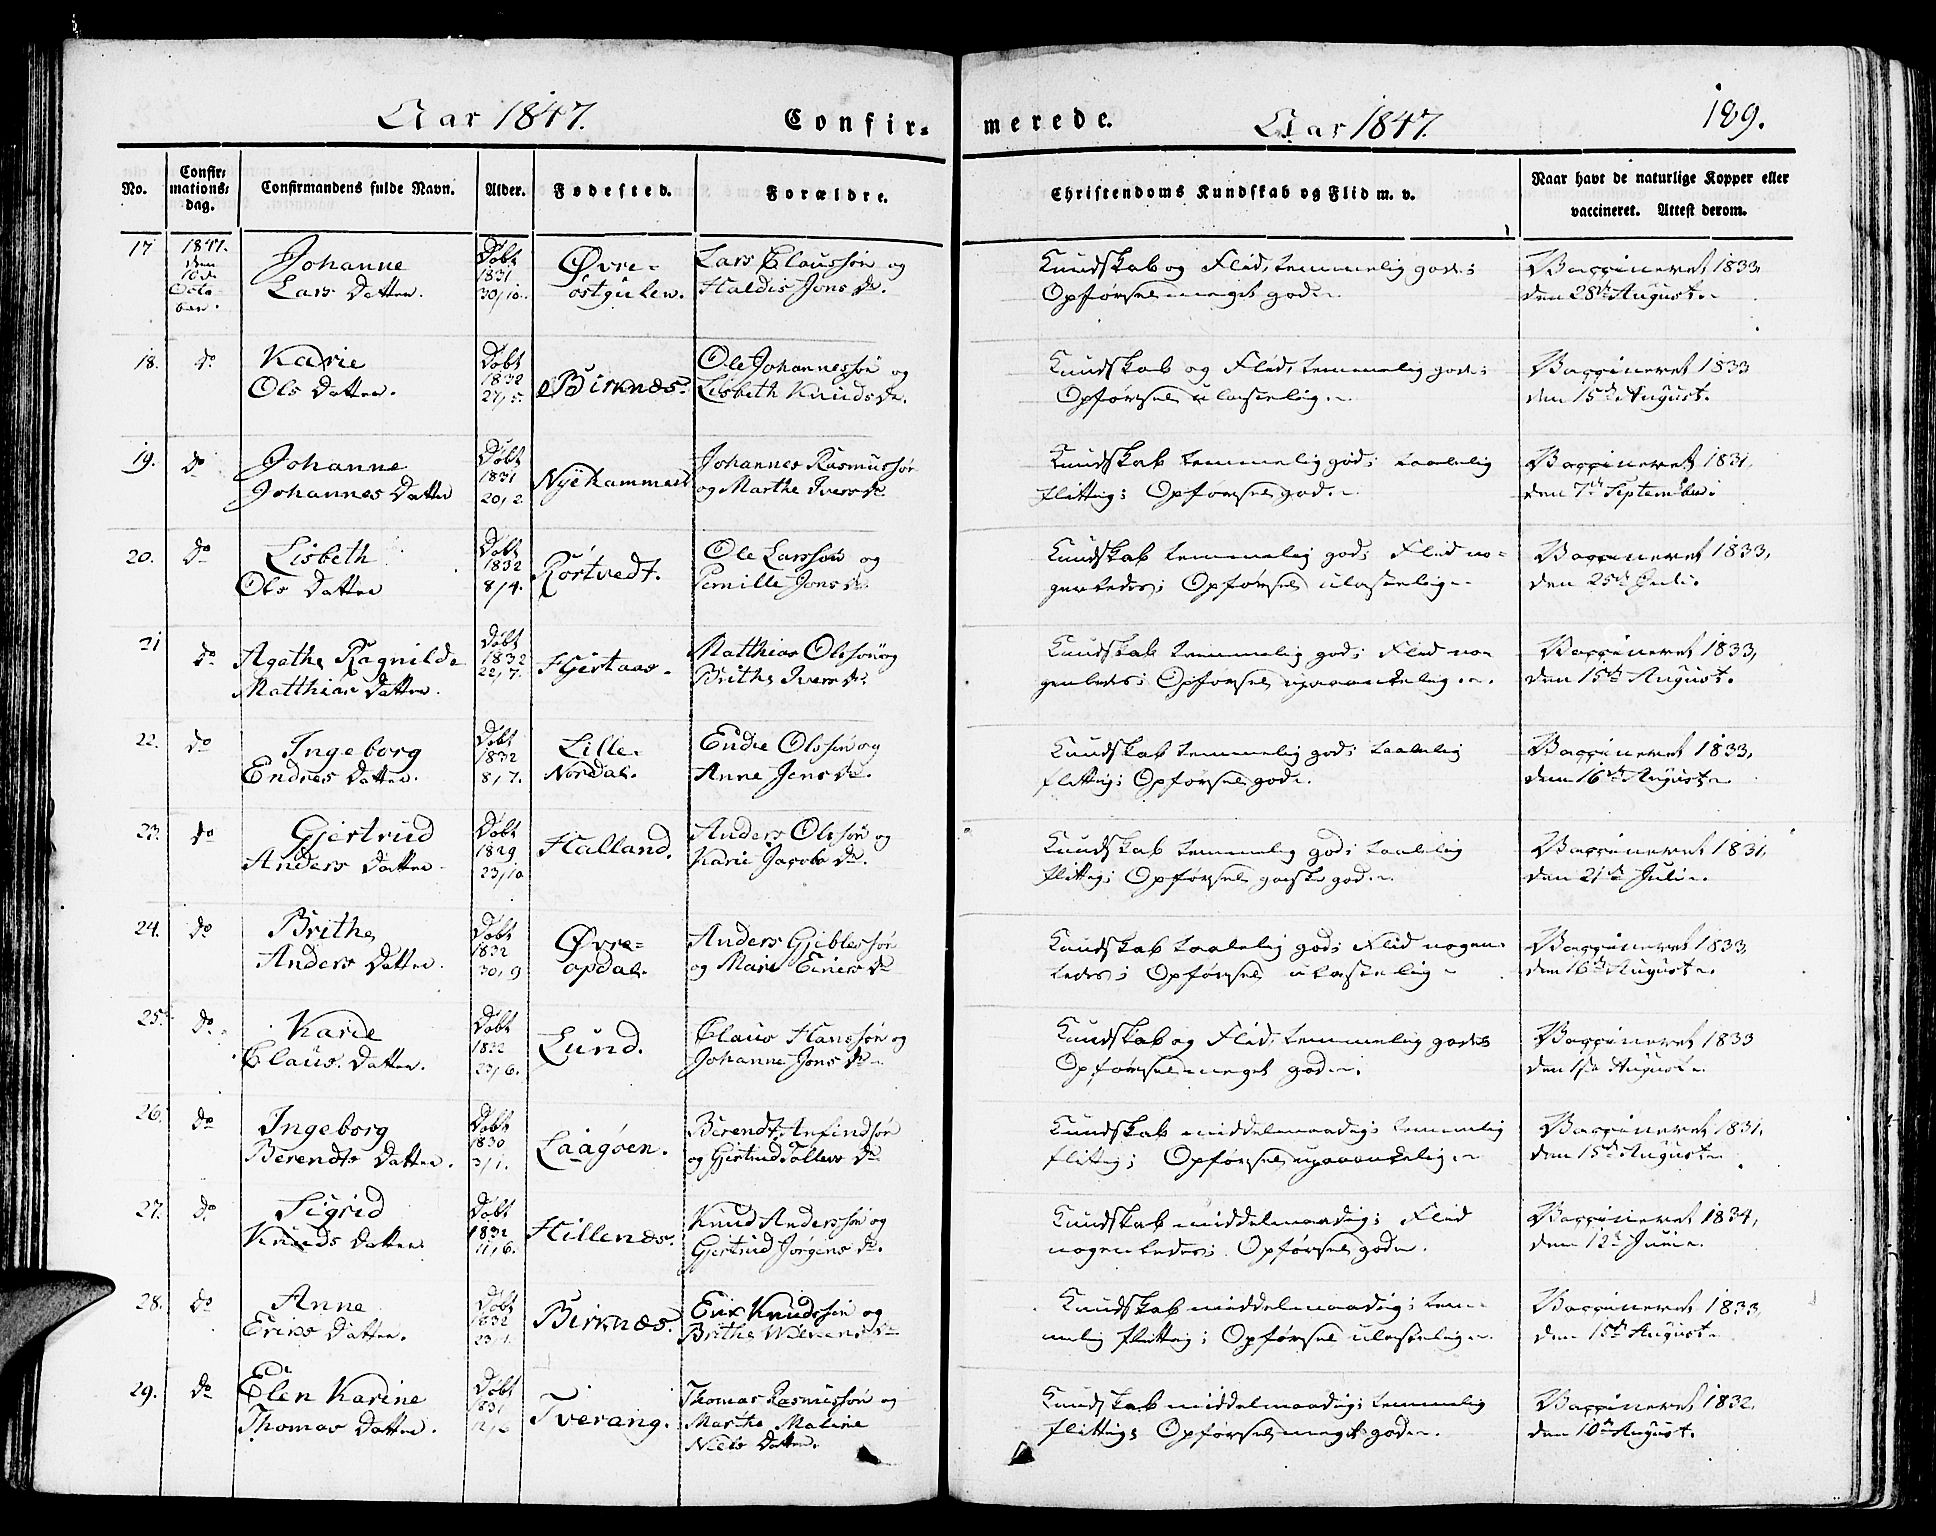 Aar 1847. Confir-
merede. Aar 1847. 189.
No. Confir-mations-dag. Confirmandens fulde Navn. Alder. Fødested. Forældre. Christendoms Kundskab og Flid m. v. Naar havt de naturlige Kopper eller vaccineret. Attest derom.
17 1847. den 10de Octo ber. Johanne Døbt 1831 Øvre- Lars Claussøn og Kundskab og Flid, temmelig gode; Vaccineret 1833,
Lars Datter. 30/10. ostgulen. Haldis Jons Dr. Opførsel meget god. den 28de August.
18. do Karie Døbt 1832 Birknæs. Ole Johannessøn og Kundskab og Flid, temmelig gode; Vaccineret 1833
Ols Datter. 27/5. Lisbeth Knuds Dr. Opførsel ulastelig. den 15de August.
19. do Johanne Døbt 1831 Nyehammer Johannes Rasmussøn Kundskab temmelig god; taalelig Vaccineret 1831,
Johannes Datter 20/2. og Marthe Ivers Dr. flittig; Opførsel god. den 7de September.
20. do Lisbeth Døbt 1832 Rørtvedt. Ole Larssøn og Kundskab temmelig god; Flid no- Vaccineret 1833,
Ols Datter 8/4. Pernille Jons Dr. genledes; Opførsel ulastelig. den 25de Juli.
21 do Agathe Ragnilde Døbt 1832 Hjertaas. Matthias Olssøn og Kundskab temmelig god; Flid no- Vaccineret 1833,
Matthias Datter. 22/7. Brithe Ivers Dr. genledes; Opførsel upaaankelig. den 15de August.
22. do Ingeborg Døbt 1832 Lille- Endre Olssøn og Kundskab temmelig god; taalelig Vaccineret 1833,
Endres Datter. 8/7. Nordal. Anne Jens Dr. flittig; Opførsel god. den 16de August.
23. do Gjertrud Døbt 1829 Halland. Anders Olssøn og Kundskab temmelig god; taalelig Vaccineret 1831,
Anders Datter. 23/10 Karie Jacobs Dr. flittig; Opførsel ganske god. den 21de Juli.
24. do Brithe Døbt 1832 Øvre- Anders Gjiblessøn Kundskab taalelig god; Flid nogen- Vaccineret 1833,
Anders Datter. 30/9 opdal. og Marie Einers Dr ledes; Opførsel ulastelig. den 16de August.
25. do. Karie Døbt 1832 Lund. Claus Hanssøn og Kundskab og Flid, temmelig gode; Vaccineret 1833
Claus Datter. 23/6. Johanne Jons Dr. Opførsel meget god. den August.
26. do Ingeborg Døbt 1830 Laagøen. Berendt Anfindsøn Kundskab middelmaadig; temmelig Vaccineret 1831,
Berendts Datter. 3/1. og Gjertrud Tollevs Dr. flittig; Opførsel upaaankelig. den 15de August.
27. do. Sigrid Døbt 1832 Hillenæs. Knud Anderssøn og Kundskab middelmaadig; Flid Vaccineret 1834,
Knuds Datter 11/6. Gjertrud Jørgens Dr. nogenledes; Opførsel god. den 12te Juni.
28. do Anne Døbt 1832 Birknæs. Erik Knudssøn og Kundskab middelmaadig; tem- Vaccineret 1833,
Eriks Datter. 23/1. Brithe Dr. melig flittig; Opførsel ulastelig. den 15de August.
29. do Elen Karine Døbt 1831 Tverang. Thomas Rasmussøn og Kundskab middelmaadig; temmelig Vaccineret 1832,
Thomas Datter. 12/6 Marthe Maline flittig; Opførsel meget god. den 10de August.
Niels Datter.